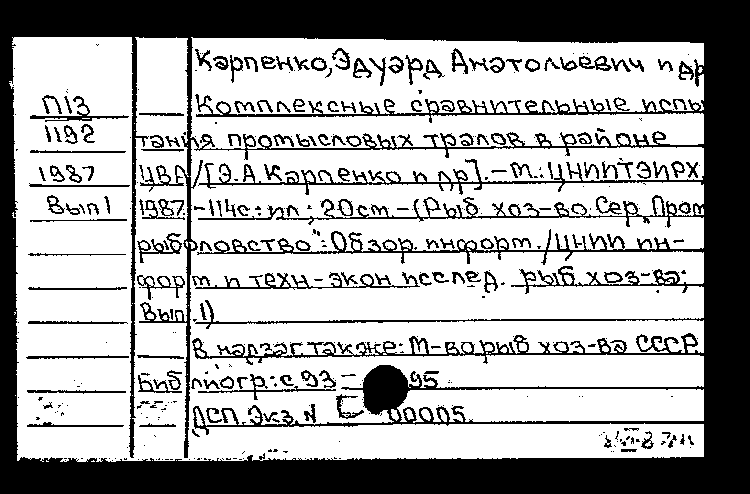 Карпенко, Эдуард Анатольевич и др
П13 Комплексные сравнительные испы
1192 тания промысловых тралов в районе
1987 ЦВА/[Э.А.Карпенко и др].-М.: ЦНИИТЭИРХ,
Вып1 1987.-114с.: ил; 20см.-(Рыб. хоз-во. Сер. „Пром
рыболовство": Обзор. информ./ЦНИИ ин-
форм. и техн-экон исслед. рыб. хоз-ва;
Вып. 1)
В надзаг. также: М-во рыб хоз-ва СССР.
Библиогр: с.93 – 95
ДСП. Экз. N 00005.